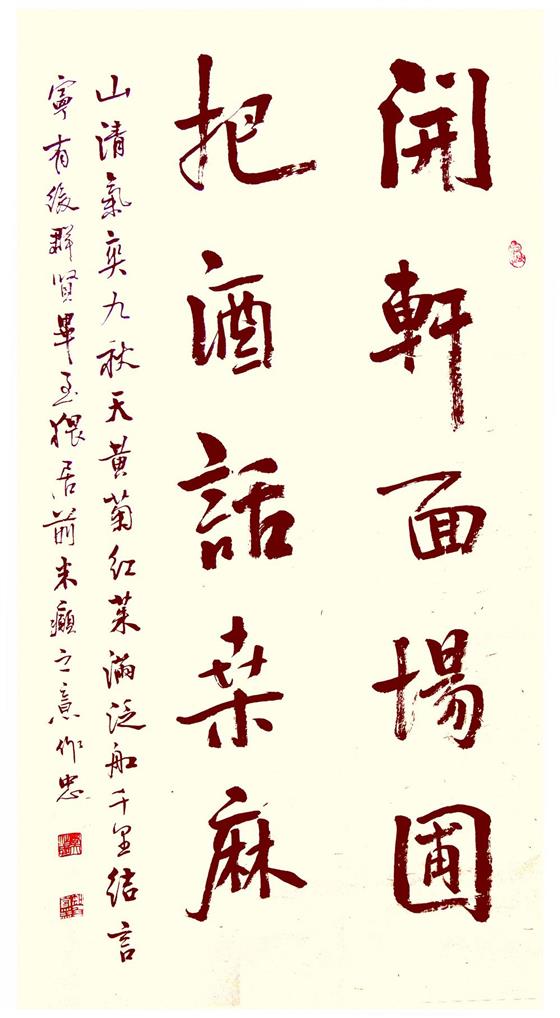 開軒面場圃
把酒話桒麻
山清氣爽九秋天黃菊紅茱滿泛船千里結言
寧有後群賢畢至猥居前米癲之意作忠